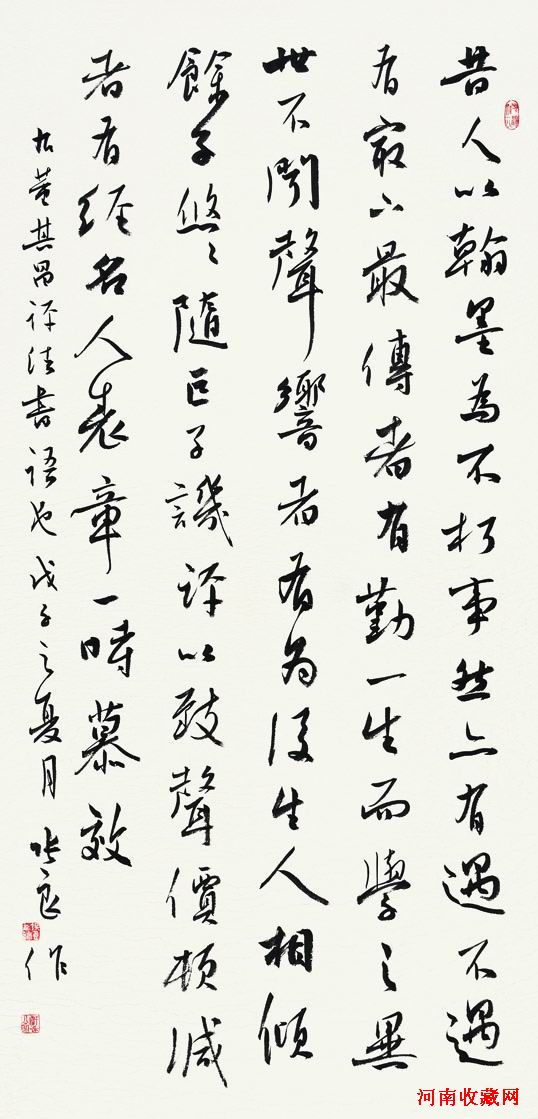 昔人以翰墨為不朽事然亦有遇不遇
有㝡下最傳者有勤一生而學之異
世不聞聲響者有為後生人相傾
餘子悠々隨巨子譏評以致聲價頓減
者有經名人表章一時慕效
右董其昌評法書語也戊子之夏月 张良作
河南收藏网